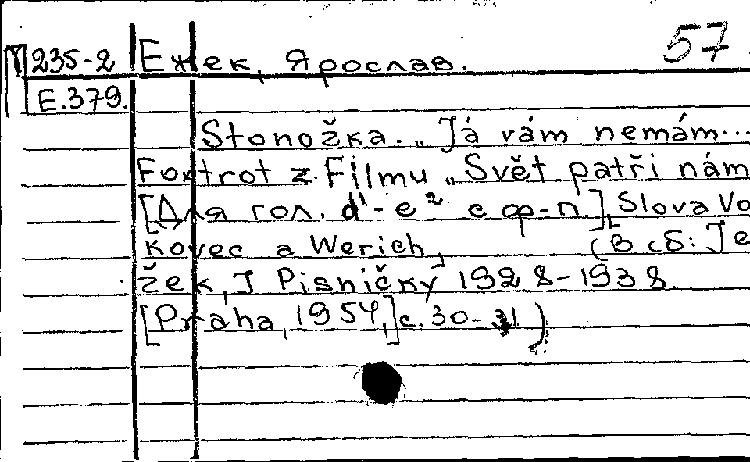 М 235-2 Ежек, Ярослав. 57
Е.379.
Stonožka. „Já vám nemám...
Foxtrot z Filmu „Svět patři nám
[Для гол. d¹-e² с ф-п.], Slova Vo
kovec a Werich, (В сб: Je
žek, J Pisničký 1928-1938
[Praha, 1954,] с. 30-31)